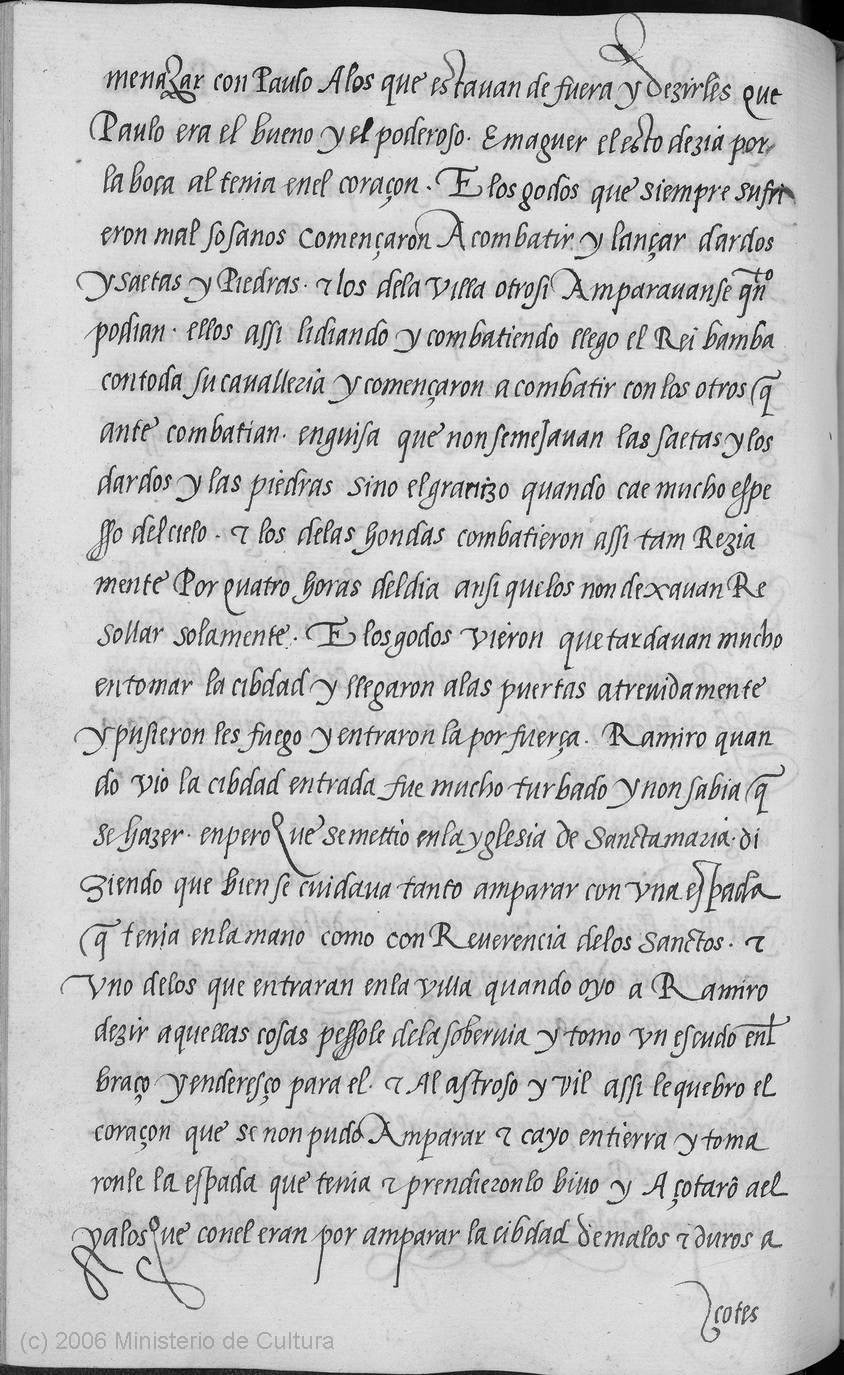 menazar con Paulo Alos que estauan de fuera y dezirles que
Paulo era el bueno y el poderoso. Emaguer el esto dezia por
la boca al tenia enel coraçon. E los godos que siempre sufri
eron mal sosanos Començaron A combatir y lançar dardos
y saetas y Piedras. ⁊ los dela villa otrosi Amparauanse qn̄to
podian. ellos assi lidiando y combatiendo llego el Rei bamba
contoda su caualleria y començaron a combatir con los otros q̄
ante combatian. enguisa que non semejauan las saetas y los
dardos y las piedras sino el granizo quando cae mucho espe
sso del cielo. ⁊ los delas hondas combatieron assi tam Rezia
mente Por quatro horas deldia ansi quelos non dexauan Re
sollar solamente. E losgodos vieron que tardauan mucho
entomar la cibdad y llegaron alas puertas atreuidamente
y pusieron les fuego y entraron la por fuerça. Ramiro quan
do vio la cibdad entrada fue mucho turbado y non sabia q̄
se hazer. enpero que semettio enla yglesia de Sancta maria. di
ziendo que bien se cuidaua tanto amparar con vna espada
q̄ tenia enla mano como con Reuerencia delos Sanctos. ⁊
vno delos que entraran enla villa quando oyo a Ramiro
dezir aquellas cosas pessole dela soberuia y tomo vn escudo enl̄
braço y enderesço para el. ⁊ Al astroso y vil assi le quebro el
coraçon que se non pudo Amparar ⁊ cayo entierra y toma
ronle la espada que tenia ⁊ prendieronlo biuo y Açotarō ael
yalos que conel eran por amparar la cibdad de malos ⁊ duros a
çotes
(c) 2006 Ministerio de Cultura